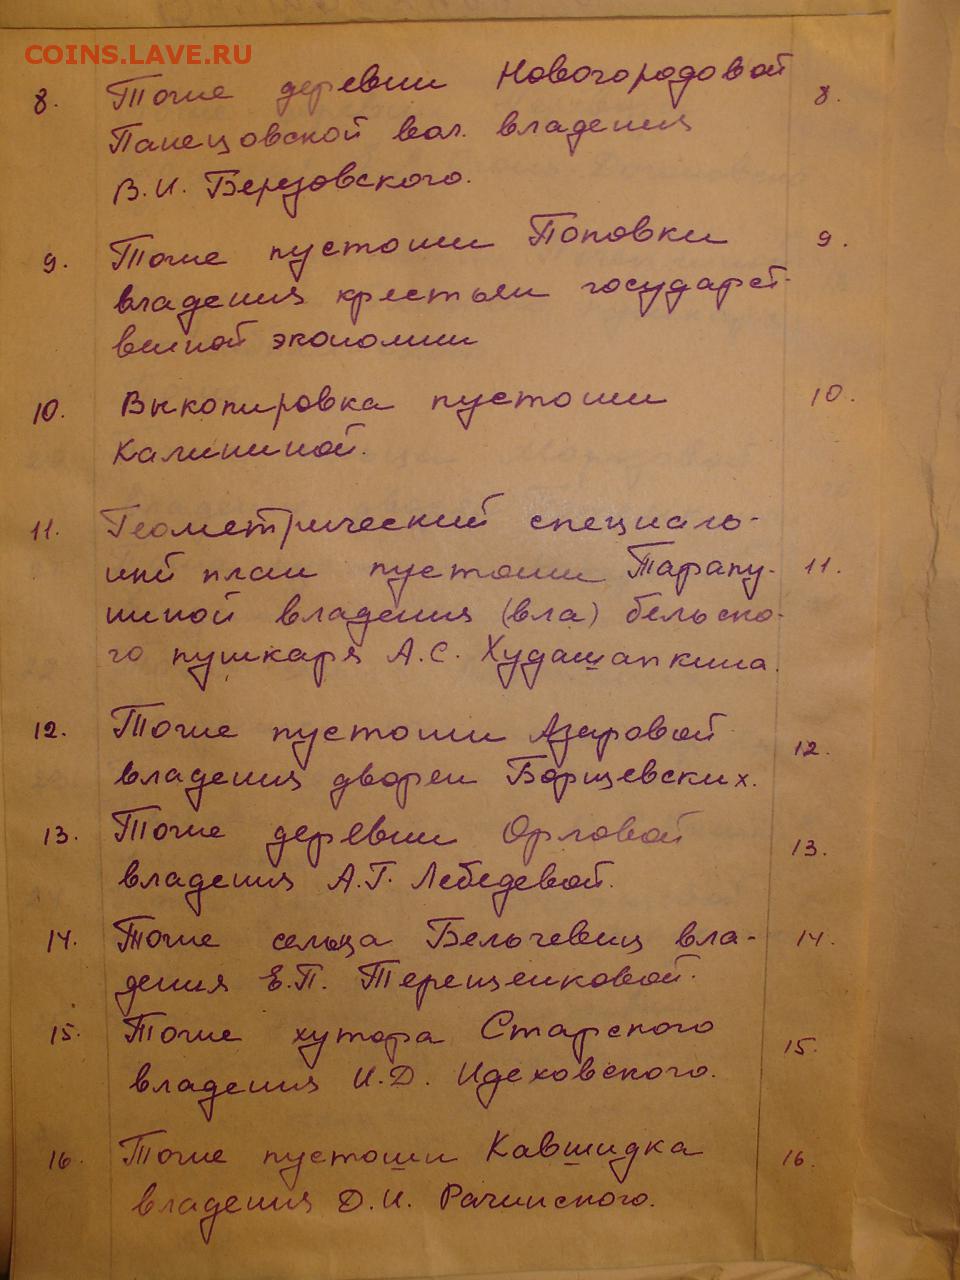 COINS.LAVE.RU
8. Тоже деревни Новогородовой 8.
Панецовской вол. владения
В.И. Березовского.
9. Тоже пустоши Поповки 9.
владения крестьян государст-
венной экономии
10. Выкопировка пустоши 10.
Калининой.
11. Геометрический специаль-
ный план пустоши Тарапу- 11.
ниной владения (вла) бельско-
го пушкаря А.С. Худашапкина.
12. Тоже пустоши Азаровой 12.
владения дворян Борщевских.
13. Тоже деревни Орловой 13.
владения А.Г. Лебедевой.
14. Тоже сельца Бельчевиц вла- 14.
дения Е.П. Терещенковой.
15. Тоже хутора Старского 15.
владения И.Д. Идеховского.
16. Тоже пустоши Кавшидка 16.
владения Д.И. Рачинского.